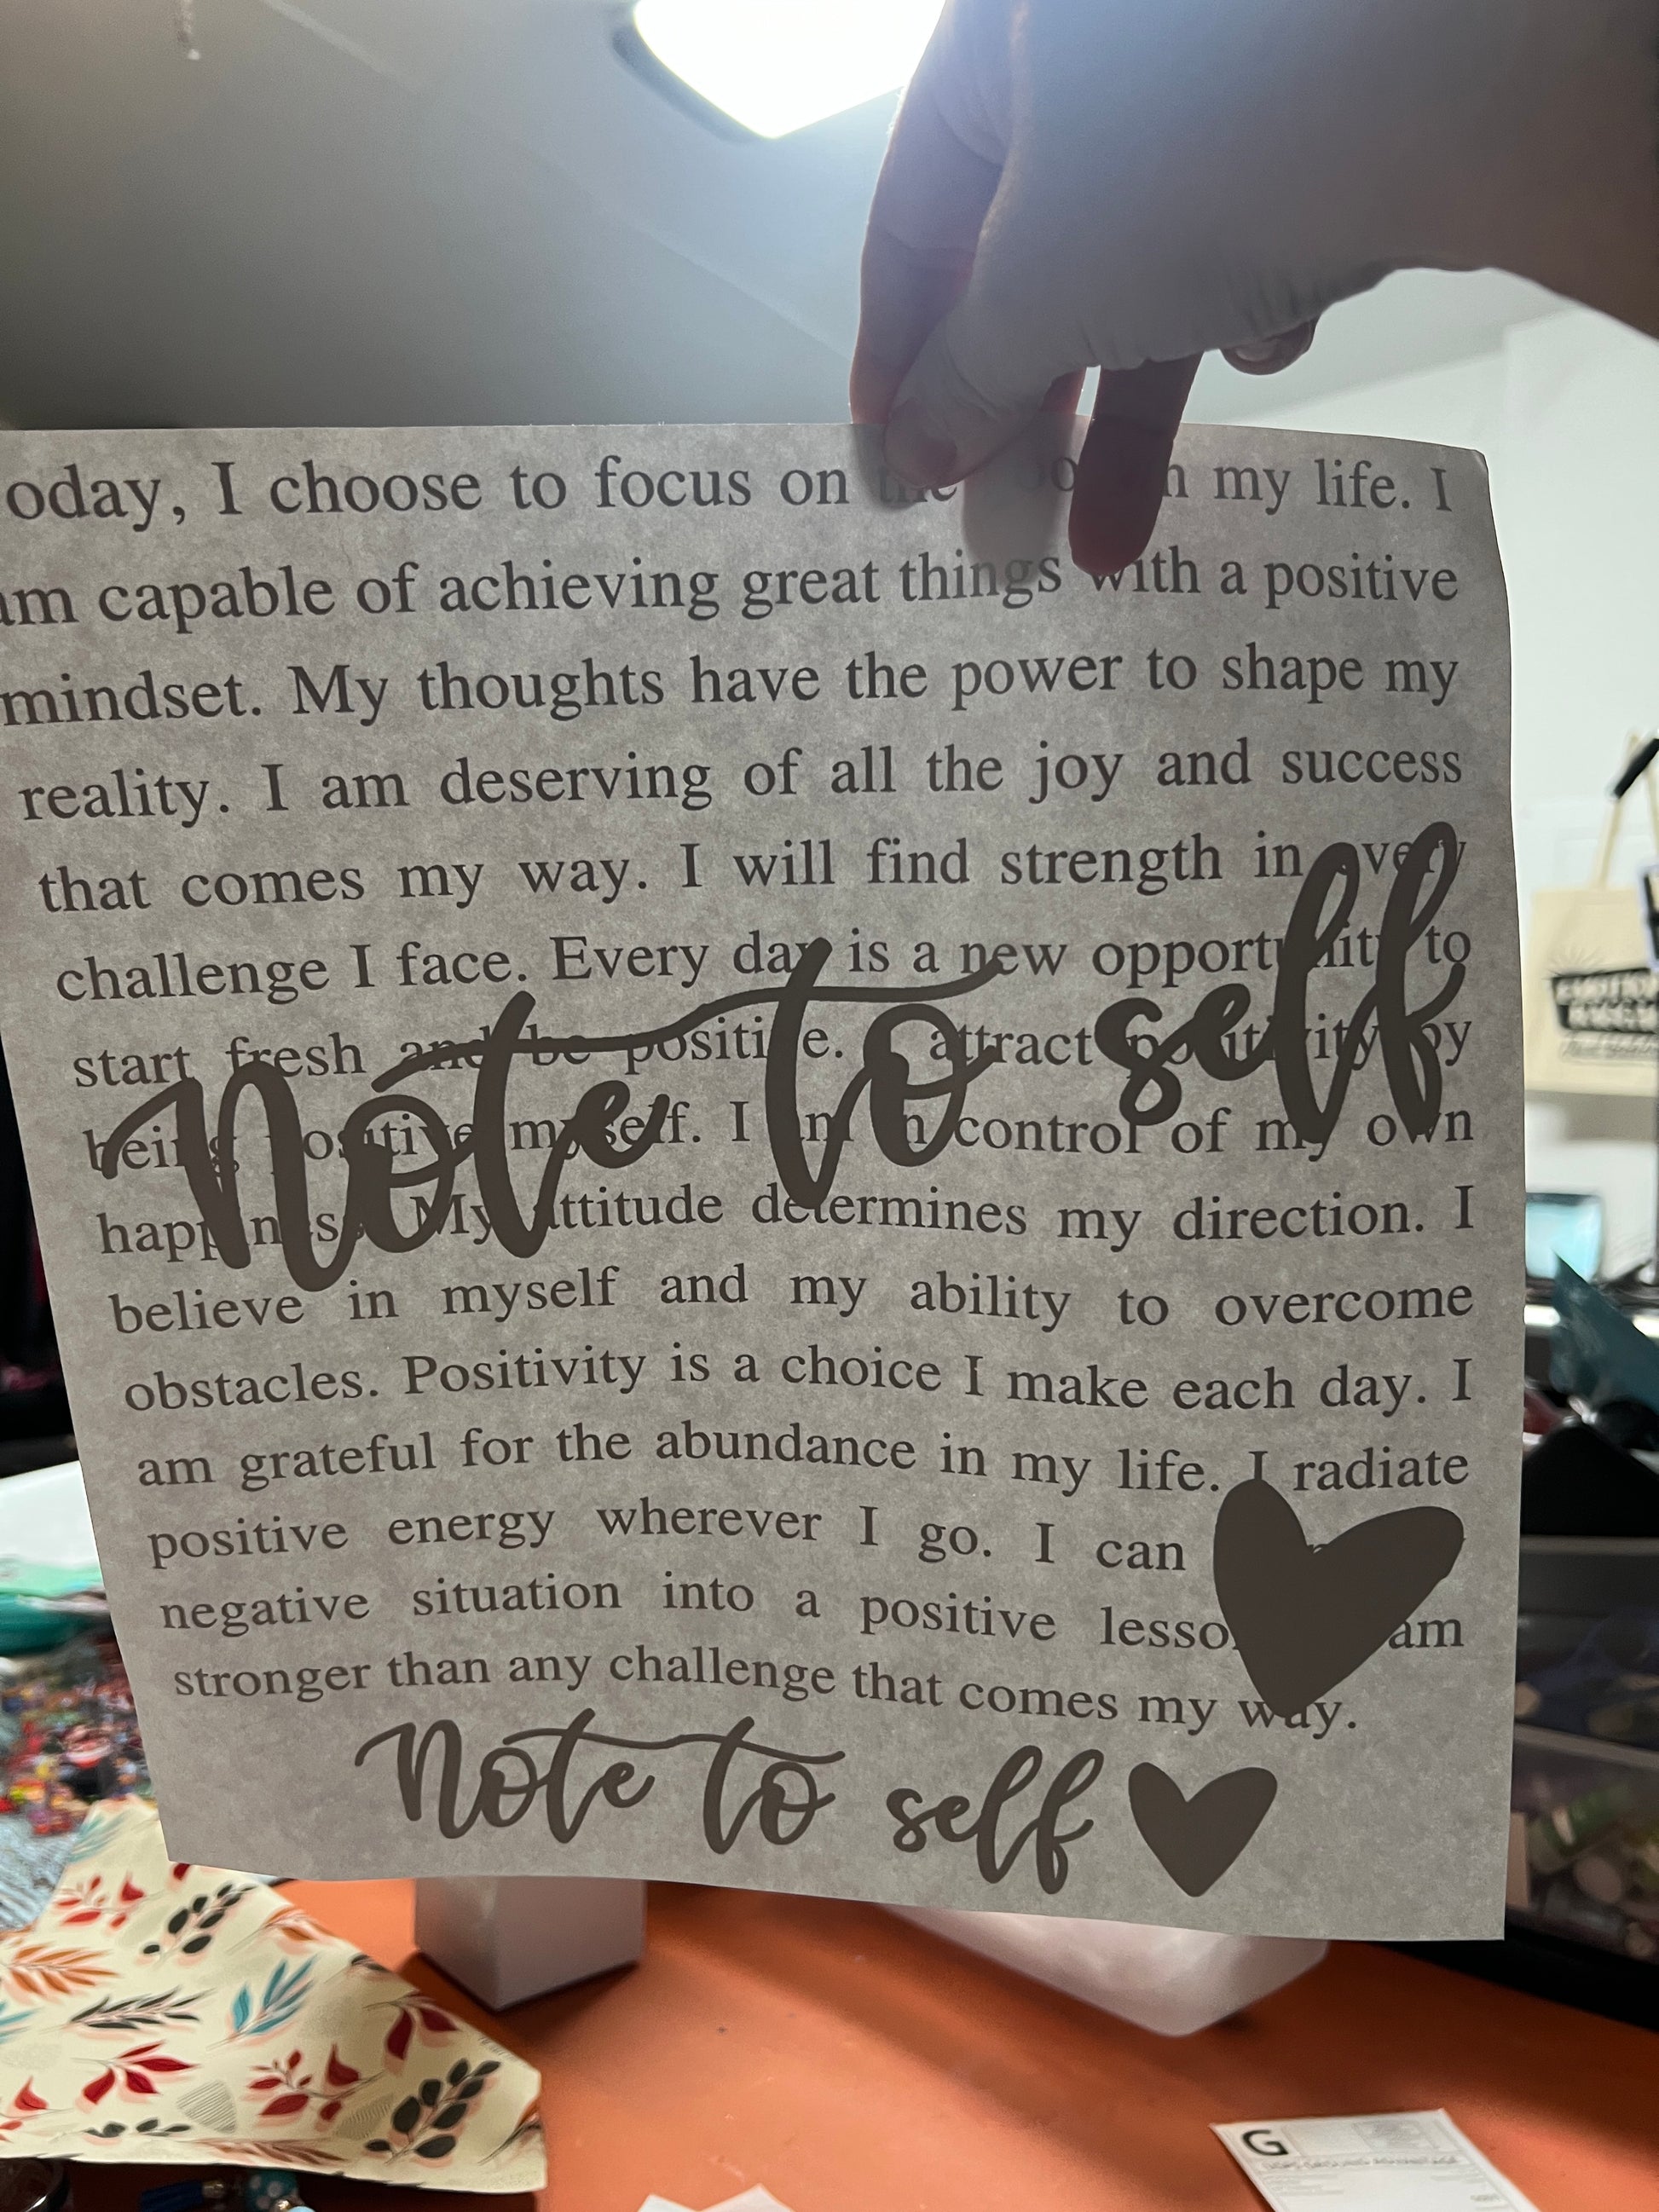 oday, I choose to focus on the in my life. I
am capable of achieving great things with a positive
mindset. My thoughts have the power to shape my
reality. I am deserving of all the joy and success
that comes my way. I will find strength in every
challenge I face. Every day is a new opportunity to
start fresh and be positive. I attract positivity by
being positive myself. I am in control of my own
happiness. My attitude determines my direction. I
believe in myself and my ability to overcome
obstacles. Positivity is a choice I make each day. I
am grateful for the abundance in my life. I radiate
positive energy wherever I go. I can
negative situation into a positive lesson. am
stronger than any challenge that comes my way.
Note to self
Note to self
G